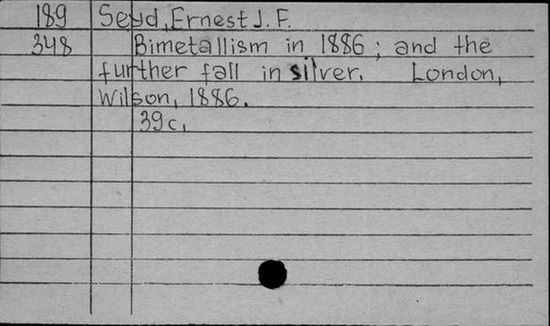 189 Seyd, Ernest J. F.
348 Bimetallism in 1886 ; and the
further fall in silver. London,
Wilson, 1886.
39 c.